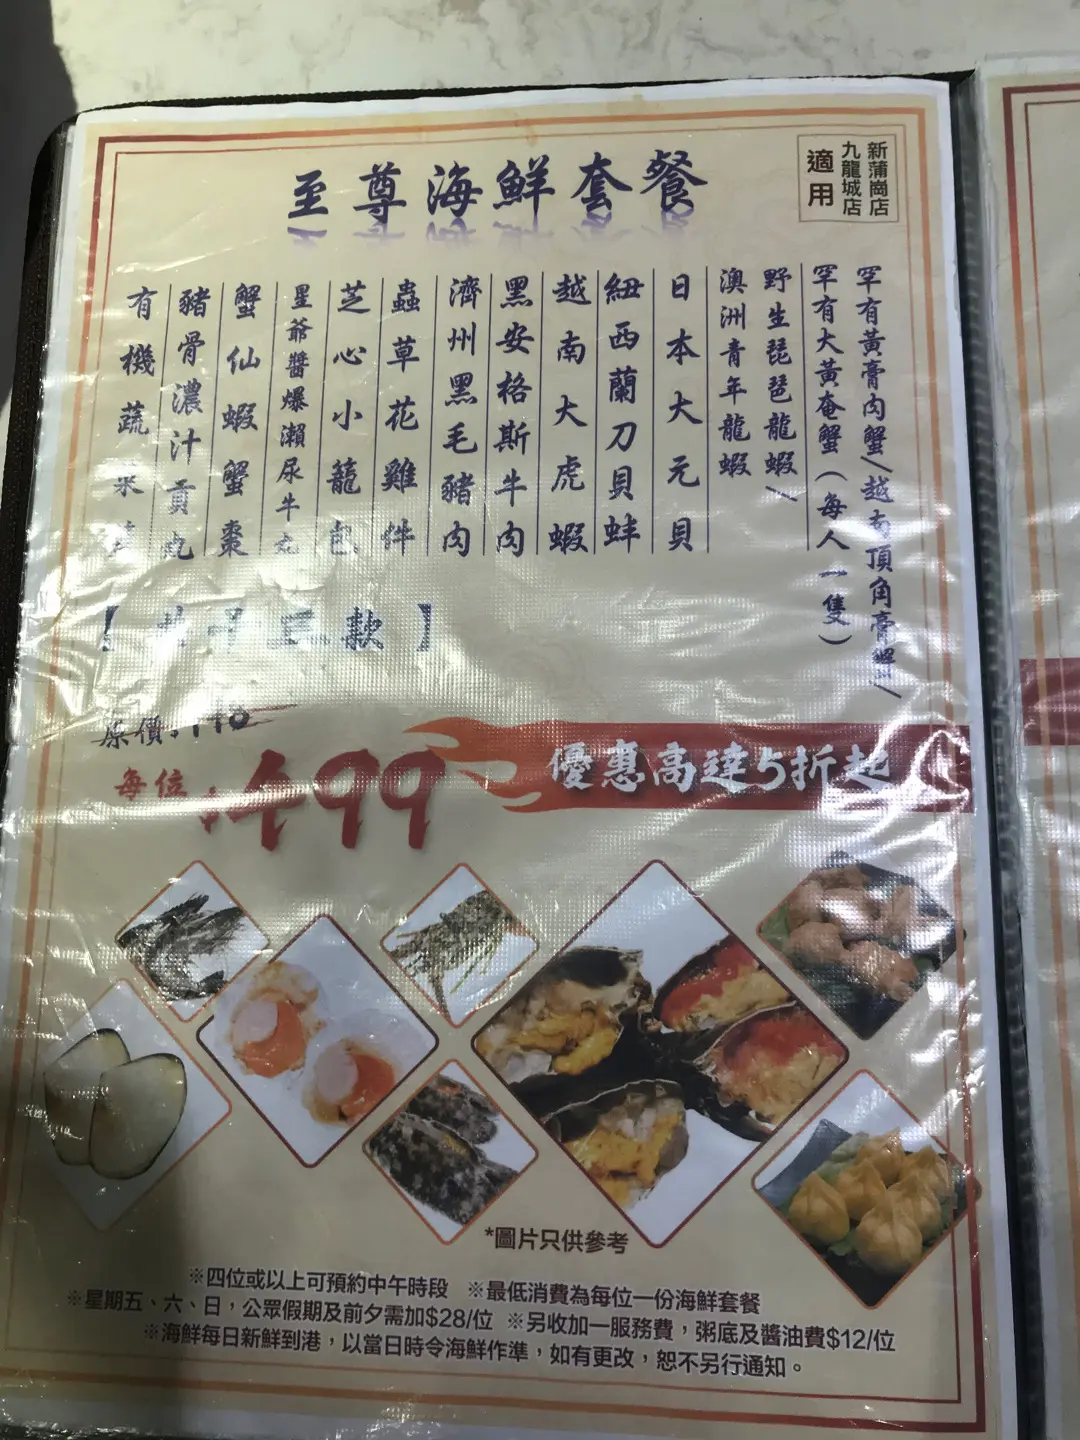 至尊海鮮套餐
新蒲崗店
九龍城店
適用
罕有黃膏肉蟹/越南頂角膏蟹/
罕有大黃奄蟹(每人一隻)
野生琵琶龍蝦/
澳洲青年龍蝦
日本大元貝
紐西蘭刀貝蚌
越南大虎蝦
黑安格斯牛肉
濟州黑毛豬肉
蟲草花雞件
芝心小籠包
星爺醬爆瀨尿牛丸
蟹仙蝦蟹棗
豬骨濃汁貢丸
有機蔬菜
【款】
原價
每位
$499
優惠高達5折起
*圖片只供參考
※四位或以上可預約中午時段 ※最低消費為每位一份海鮮套餐
※星期五、六、日,公眾假期及前夕需加$28/位 ※另收加一服務費,粥底及醬油費$12/位
※海鮮每日新鮮到港,以當日時令海鮮作準,如有更改,恕不另行通知。